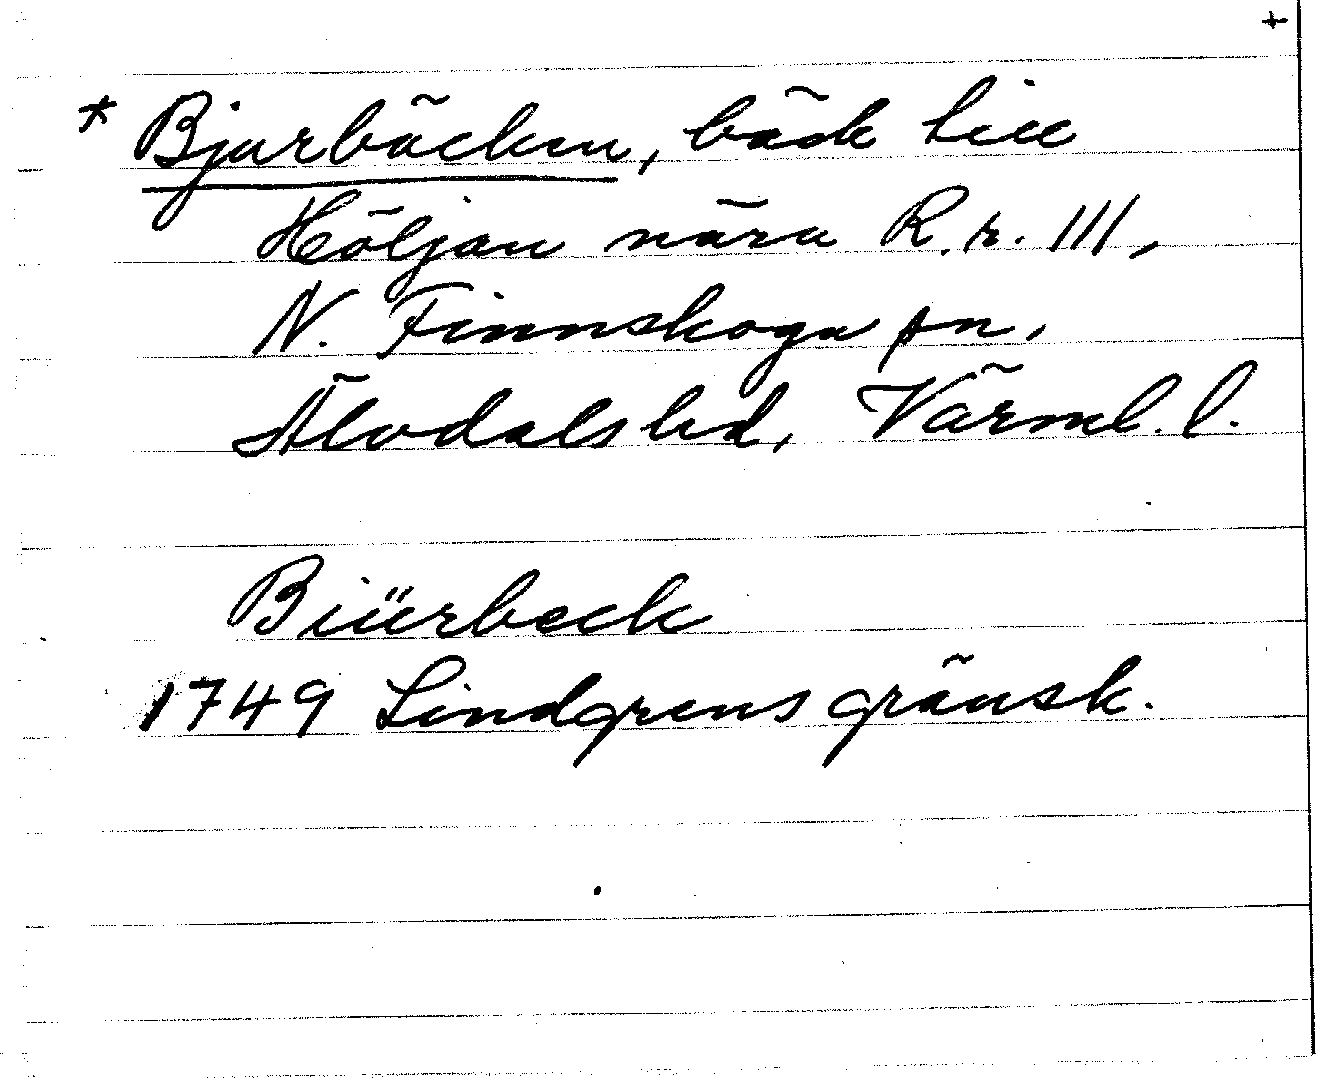 +
* Bjurbäcken, bäck till
Höljan nära R.r. 111,
N. Finnskoga sn,
Älvdals hd, Värml. l.
Biürbeck
1749 Lindgrens gränsk.